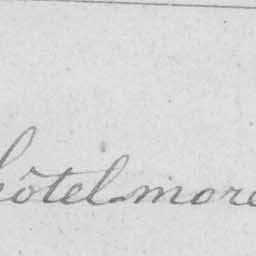 hôtel more